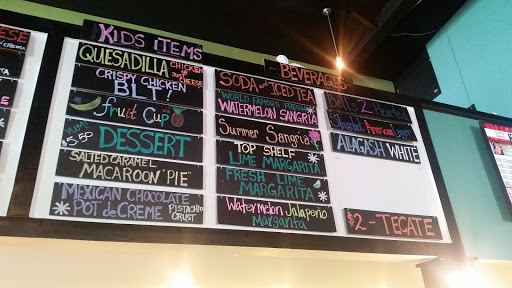 KIDS ITEMS
QUESADILLA CHICKEN or JUST CHEESE
CRISPY CHICKEN
BLT!
fruit Cup
YUM!
$5.50 DESSERT
SALTED CARAMEL
MACAROON "PIE"
MEXICAN CHOCOLATE
POT de CREME PISTACHIO CRUST
BEVERAGES
SODA and ICED TEA
WORLD FAMOUS FRESH
WATERMELON SANGRIA
Summer Sangria
TOP SHELF
LIME MARGARITA
FRESH LIME
MARGARITA
Watermelon Jalapeño
Margarita
Bell's 2-Hearted
American
ALLAGASH WHITE
$2-TECATE